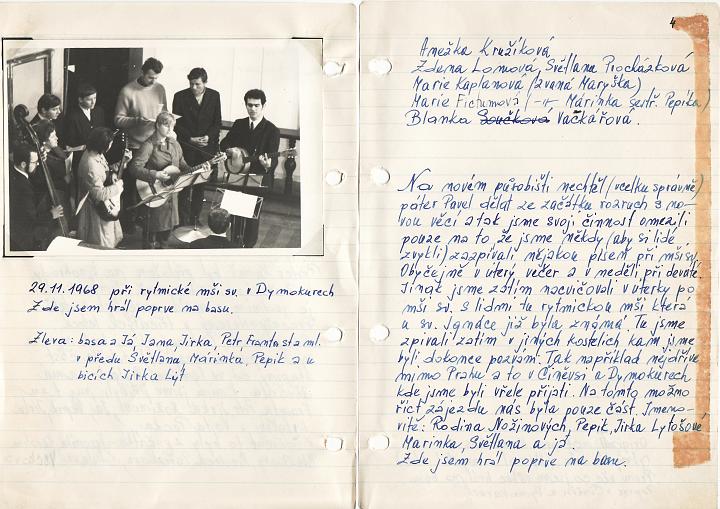 29.11.1968 při rytmické mši sv. v Dymokurech
Zde jsem hrál poprve na basu.
Zleva: basa a Já, Jana, Jirka, Petr, Franta sta ml.
v předu Světlana, Márinka, Pepik a u
bicích Jirka Lyt
4
Anežka Kružíková
Zdena Lomová, Světlana Procházková
Marie Kaplanová (zvaná Maryška)
Marie Fictumová Márinka sestř. Pepika)
Blanka Součková Vačkářová.
Na novém působišti nechtěl (vcelku správně)
páter Pavel dělat ze začátku rozruch s no-
vou věcí a tak jsme svoji činnost omezili
pouze na to že jsme někdy (aby si lidé
zvykli) zazpívali nějakou píseň při mši sv.
Obyčejně v úterý večer a v neděli při deváté.
Jinak jsme zatím nacvičovali v úterky po
mši sv. s lidmi tu rytmickou mši která
u sv. Ignáce již byla známá. Tu jsme
zpívali zatím v jiných kostelích kam jsme
byli dokonce pozváni. Tak například nejdříve
mimo Prahu a to v Činěvsi a Dymokurech
kde jsme byli vřele přijati. Na tomto možno
říct zájezdu nás byla pouze část. Jmeno-
vitě: Rodina Nožinových, Pepik, Jirka Lytošové
Marinka, Světlana a já.
Zde jsem hrál poprve na basu.